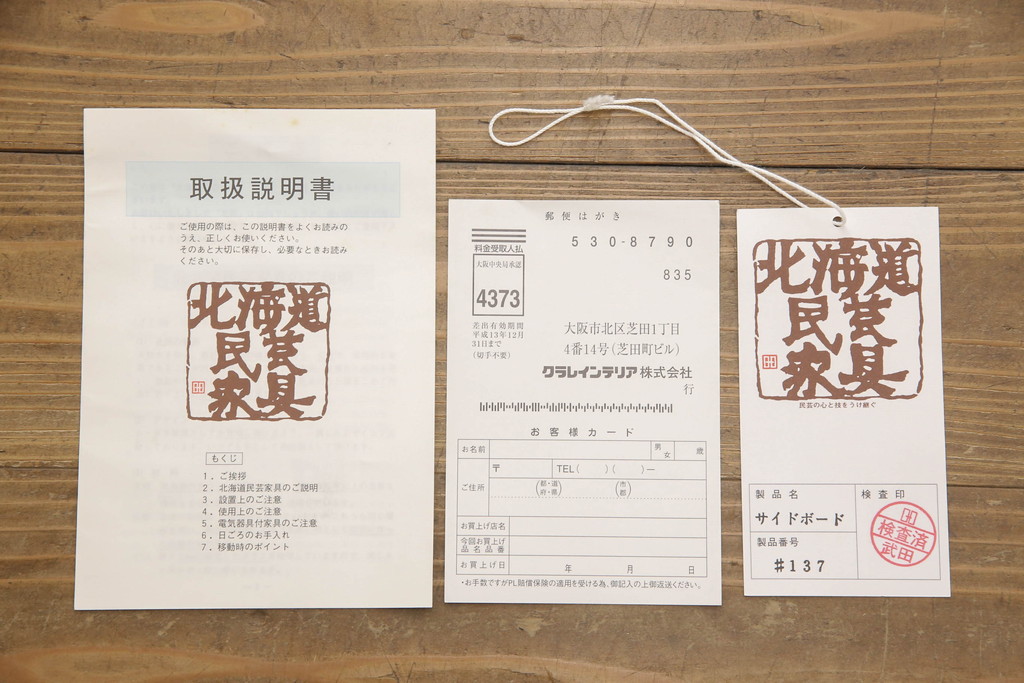 取扱説明書
ご使用の際は、この説明書をよくお読みの
うえ、正しくお使いください。
そのあと大切に保存し、必要なときお読み
ください。
北海道
民芸
家具
もくじ
1．ご挨拶
2．北海道民芸家具のご説明
3．設置上のご注意
4．使用上のご注意
5．電気器具付家具のご注意
6．日ごろのお手入れ
7．移動時のポイント
郵便はがき
料金受取人払
大阪中央局承認
4373
差出有効期間
平成13年12月
31日まで
（切手不要）
530-8790
835
大阪市北区芝田1丁目
4番14号(芝田町ビル)
クラレインテリア株式会社
行
お客様カード
お名前
男
女
歳
ご住所
〒
TEL( )( )―
(都・道
府・県)
(市
郡)
お買上げ店名
今回お買上げ
品名品番
お買上げ日
年 月 日
・お手数ですがPL賠償保険の適用を受ける為、御記入の上御返送ください。
北海道
民芸
家具
民芸の心と技をうけ継ぐ
製品名
サイドボード
製品番号
#137
検査印
検査済
武田